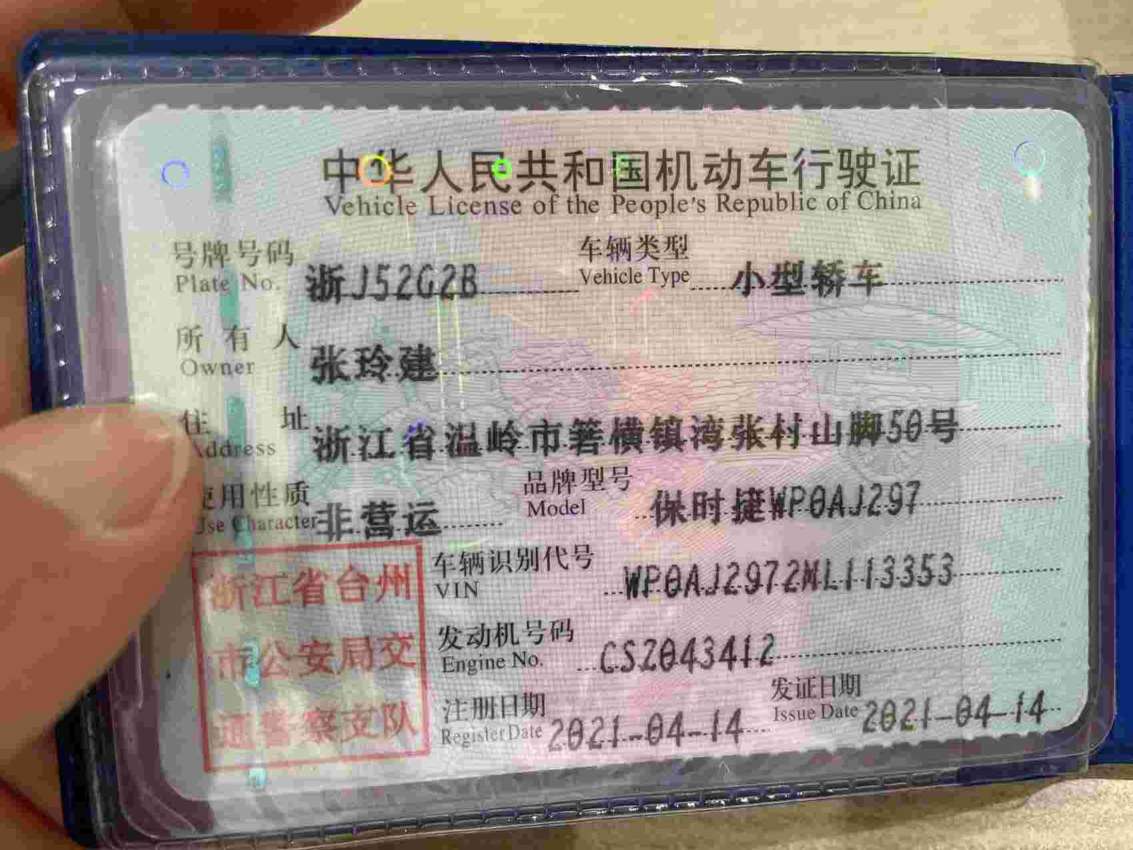 中华人民共和国机动车行驶证
Vehicle License of the People's Republic of China
号牌号码 浙J52G2B 车辆类型 小型轿车
Plate No. Vehicle Type
所有人 张玲建
Owner
住址 浙江省温岭市箬横镇湾张村山脚50号
Address
使用性质 非营运 品牌型号 保时捷WP0AJ297
Use Character Model
车辆识别代号 WP0AJ2972ML113353
VIN
发动机号码 CSZ043412
Engine No.
注册日期 2021-04-14 发证日期 2021-04-14
Register Date Issue Date
浙江省台州
市公安局交
通警察支队